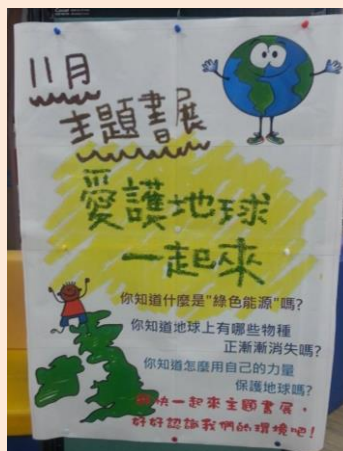 11月
主題書展
愛護地球
一起來
你知道什麼是"綠色能源"嗎?
你知道地球上有哪些物種
正漸漸消失嗎?
你知道怎麼用自己的力量
保護地球嗎?
快一起來主題書展，
好好認識我們的環境吧!